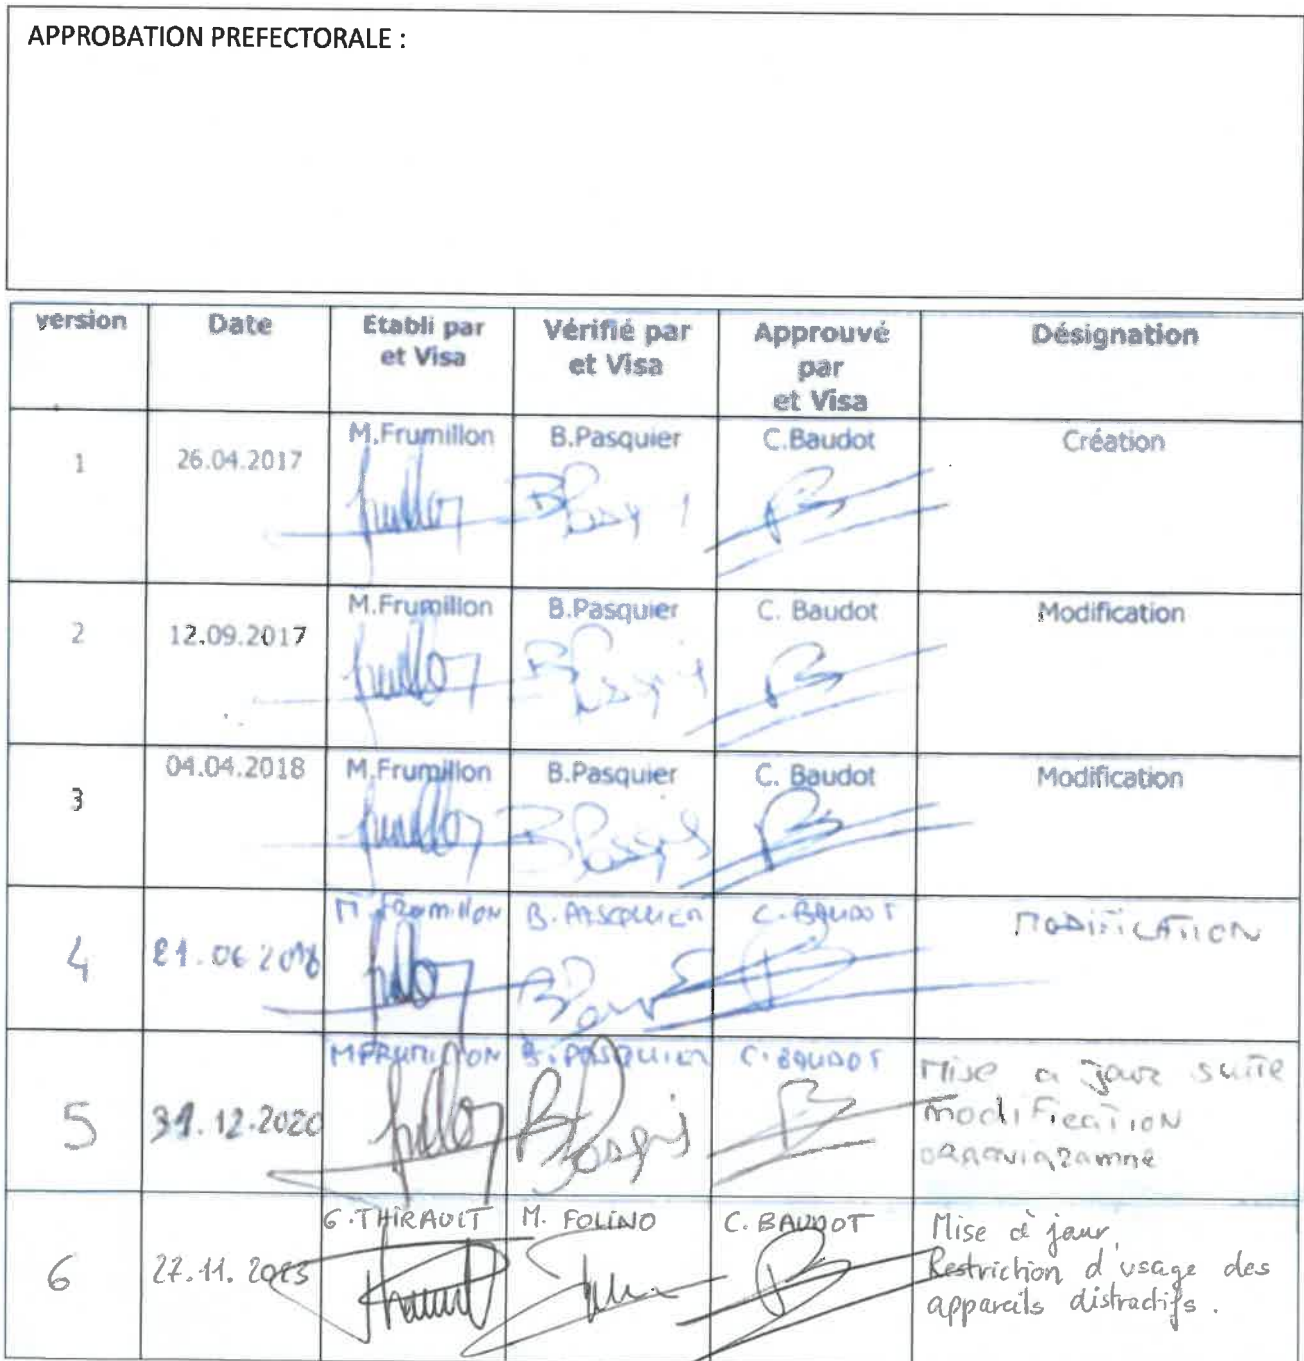 APPROBATION PREFECTORALE :
version Date Etabli par et Visa Vérifié par et Visa Approuvé par et Visa Désignation
1 26.04.2017 M.Frumillon B.Pasquier C.Baudot Création
2 12.09.2017 M.Frumillon B.Pasquier C. Baudot Modification
3 04.04.2018 M.Frumillon B.Pasquier C. Baudot Modification
4 21.06 2018 M. Frumillon B. PASQUIER C. BAUDOT MODIFICATION
5 31.12.2020 M FRUMILLON B. PASQUIER C. BAUDOT Mise a jour suite
modification
6 27.11. G. THIRAULT M. FOLINO C. BAUDOT Mise à jour,
Restriction d'usage des
appareils distractifs.